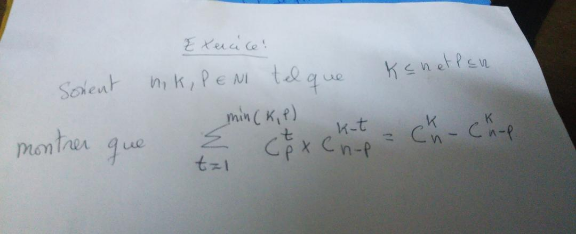 Exercice:
Soient n, K, P ∈ IN tel que K ≤ n et P ≤ n
montrer que \sum_{t=1}^{min(K,P)} C_P^t × C_{n-P}^{K-t} = C_n^K - C_{n-P}^K